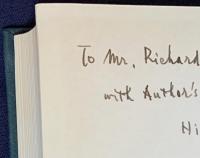 To Mr. Richard
with Author's
Hi